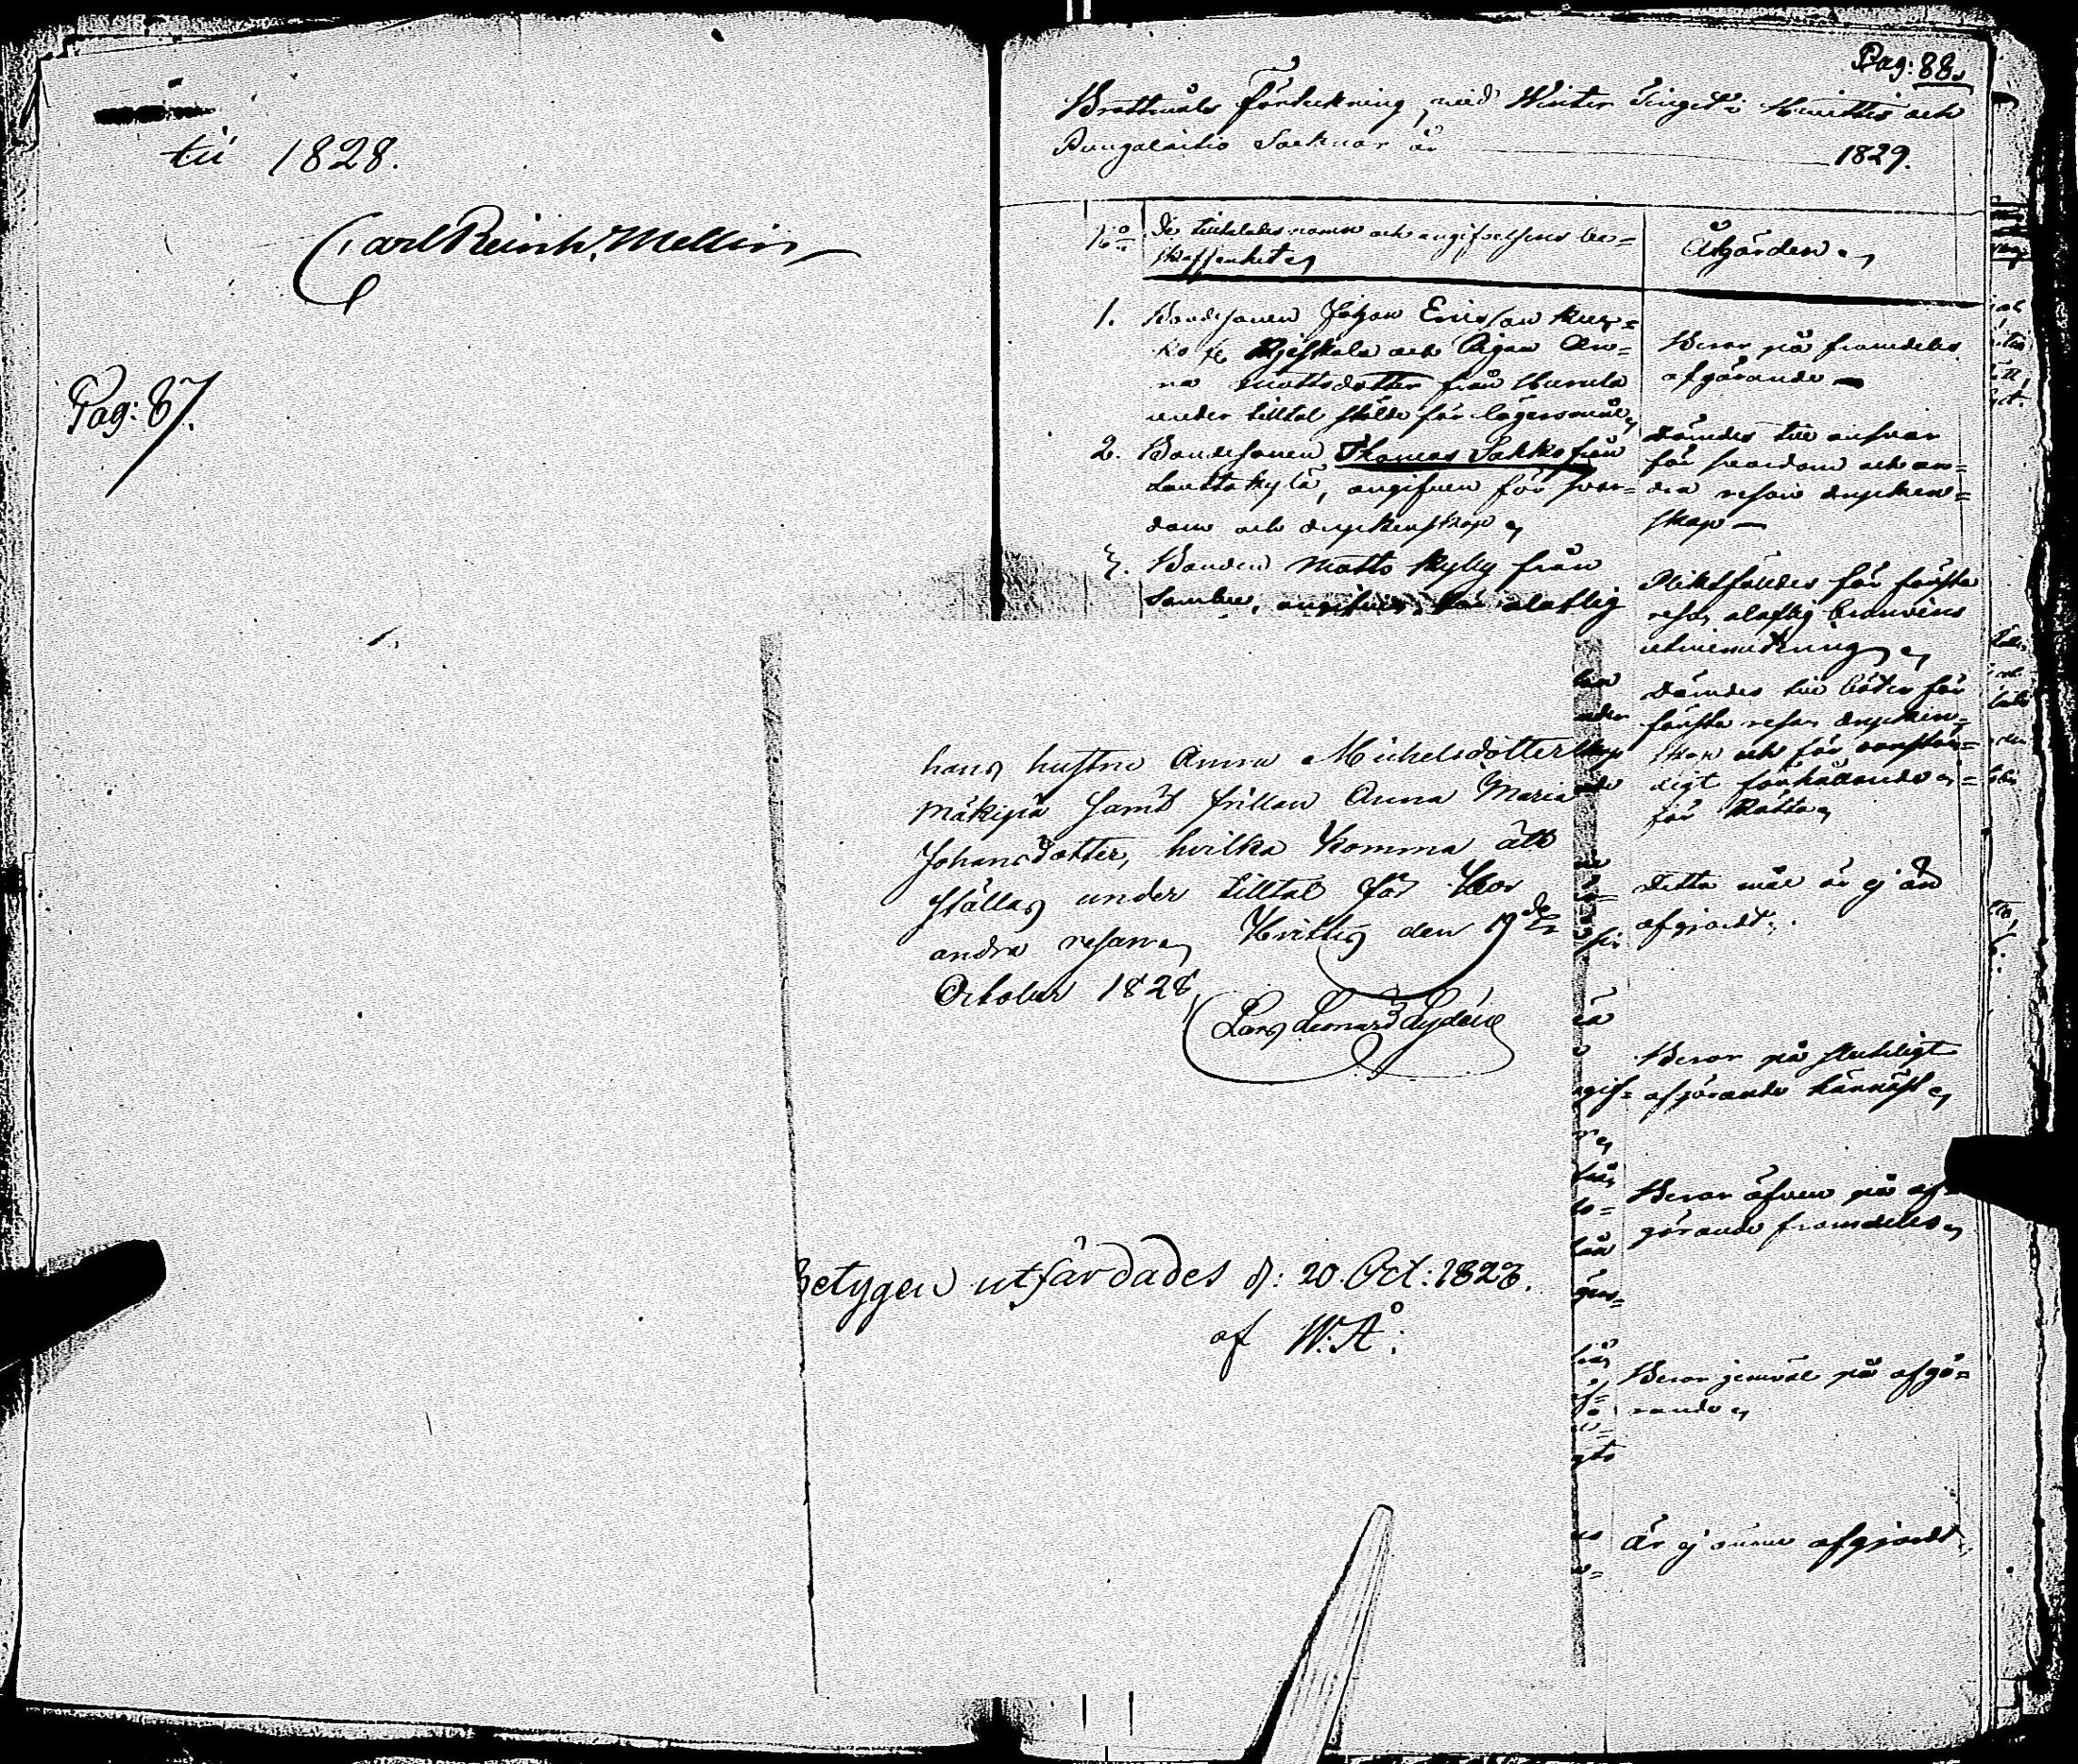 till 1828.
Carl Reinh. Mellin
Pag: 87.
Pag: 88.
Brottmåls Förteckning, vid Winter Tinget i Huittis och
Pungalaitio Socknar år 1829.
No De tilltalades namn och angifvelsens be=
skaffenhet
Åtgärden
1. Bondesonen Johan Ericsson
och Pigan An=
na Mattsdotter från
under tilltal stälde för lägersmål
Beror på framdeles
afgörande
2. Bondesonen Thomas Sakko från
Lauttakylä, angifven för svor=
dom och dryckenskap
Dömdes till ansvar
för svordom och an=
dra resan drycken=
skap
3. Bonden Matts Kylly från
Sambu, angifven för olaflig
Pliktfälldes för första
resan olaflig bränvins
utminutering
Dömdes till böter för
första resan drycken=
skap och för oanstän=
digt förhållande in=
för Rätta
Detta mål är ej än
afgjordt.
Beror på slutligt
afgörande härnäst
Beror äfven på af=
görande framdeles
Beror jemväl på afgö=
rande
Är ej ännu afgjordt
hans hustru Anna Michelsdotter
Mäkipää samt frillan Anna Maria
Johansdotter, hvilka komma att
ställas under tilltal för Hor
andra resan. Hvittis den 19de
October 1828.
Lars Leonard Lydén
Betygen utfärdades d: 20 Oct: 1828.
af W. Å: